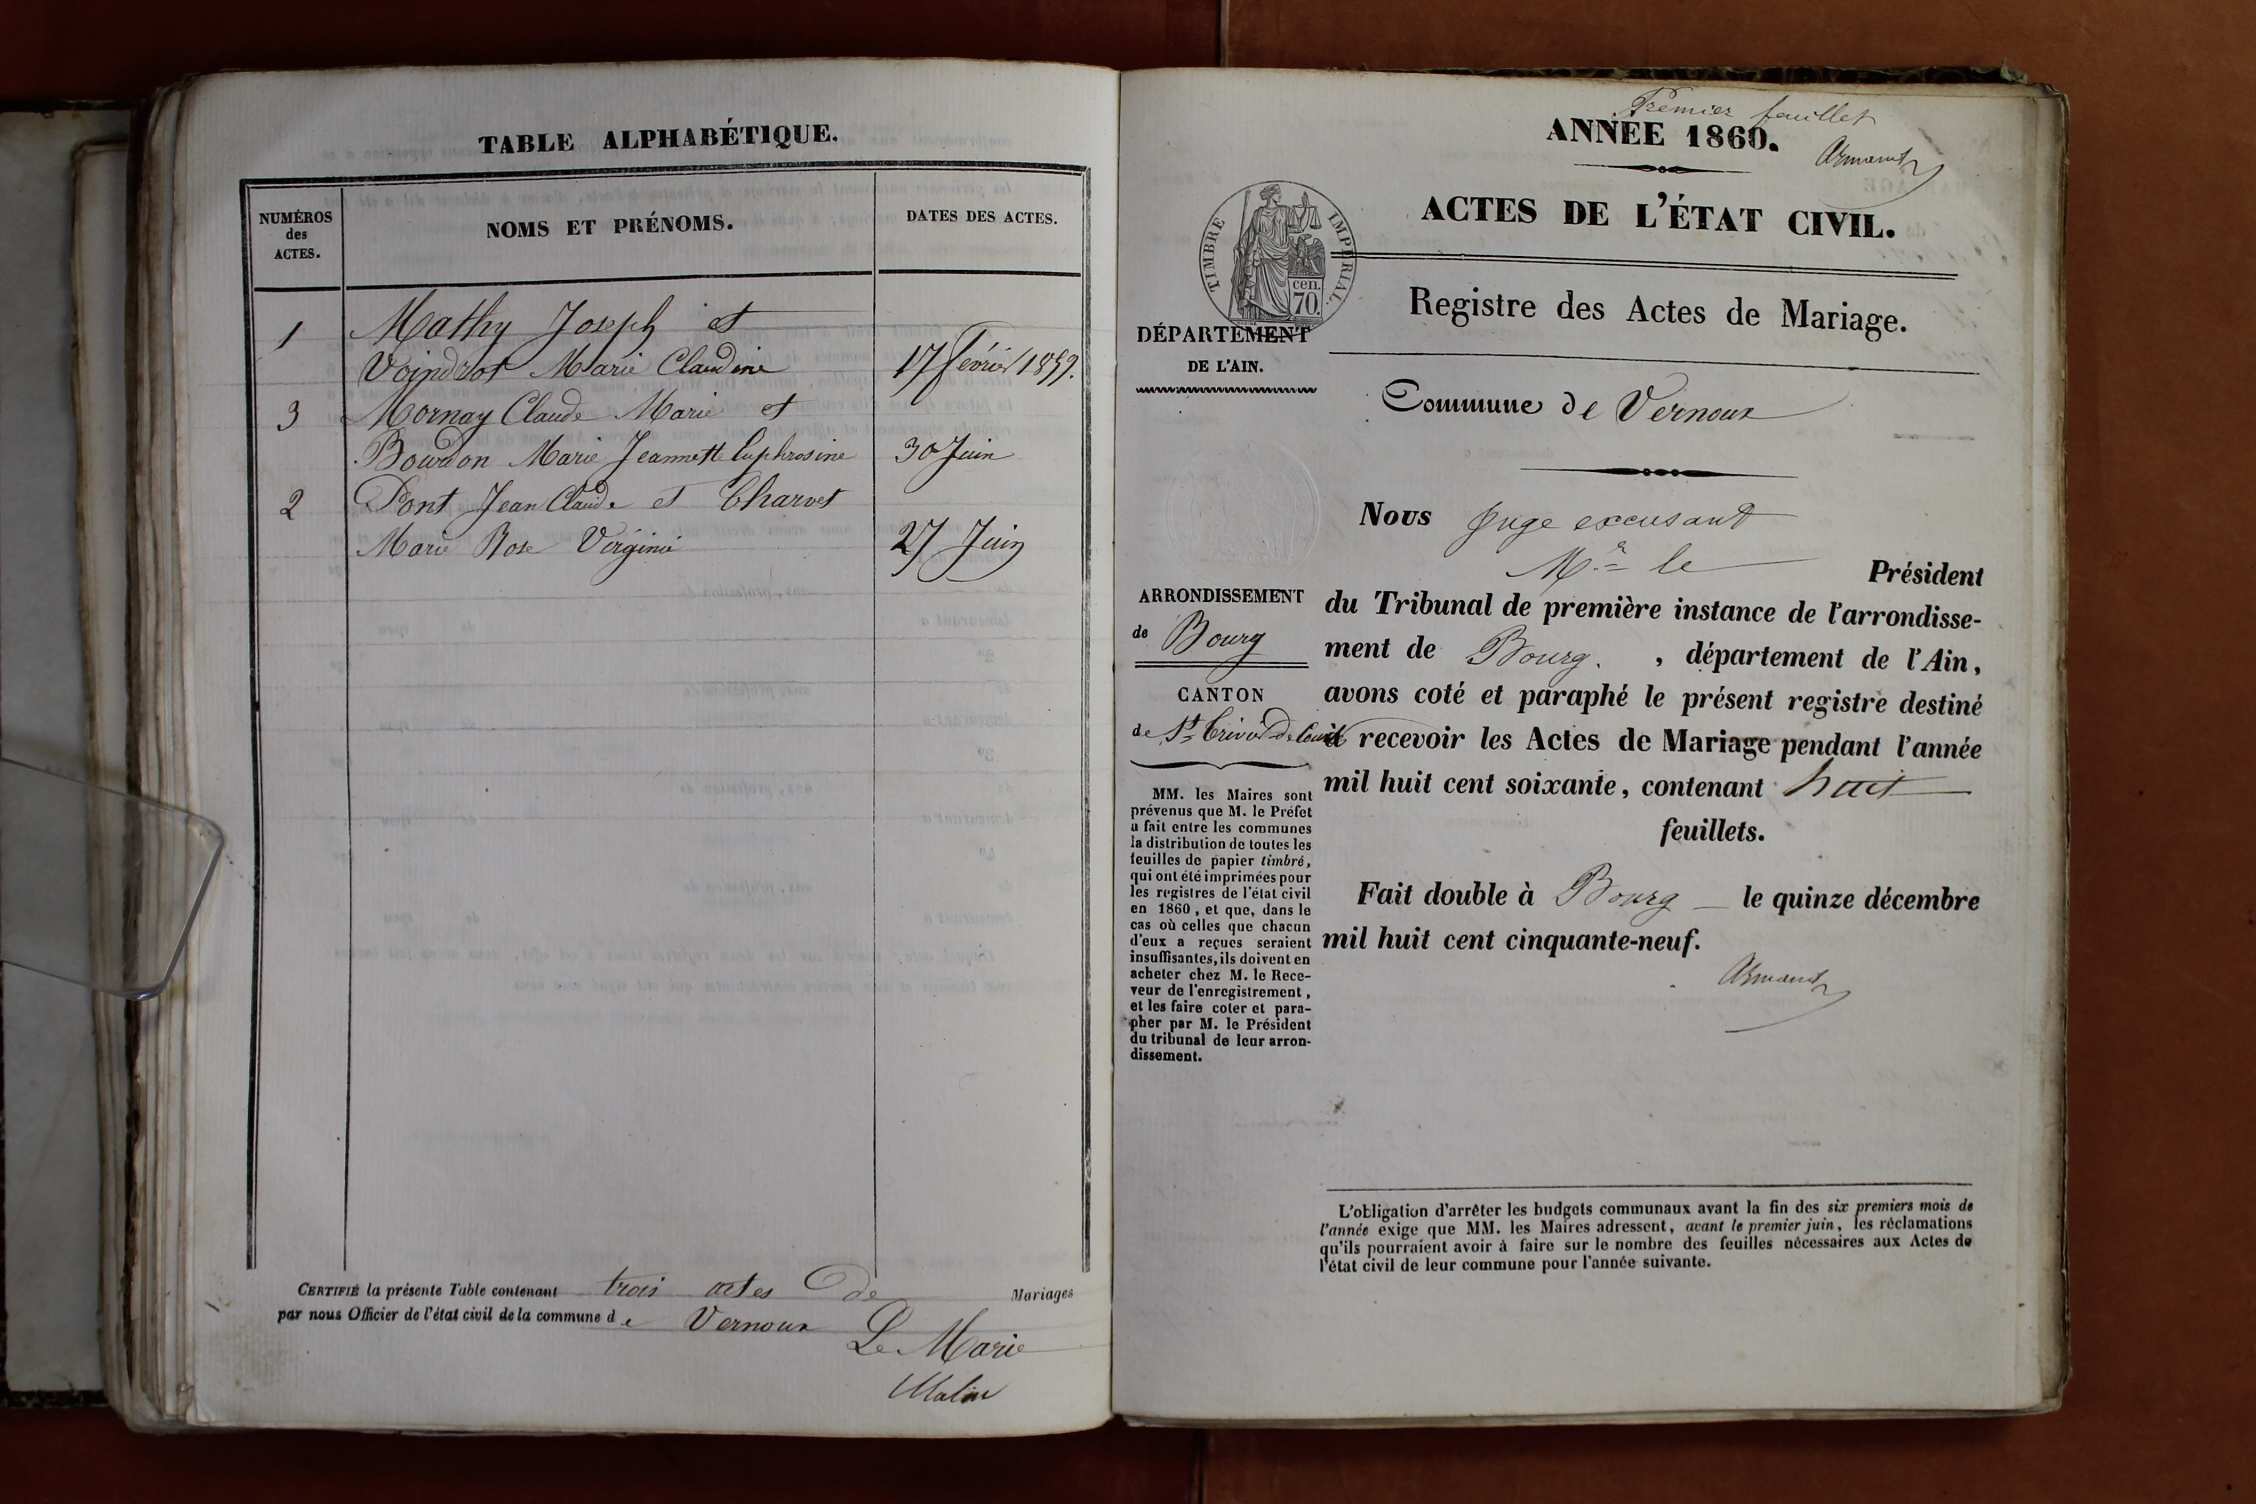 TABLE ALPHABÉTIQUE.
NUMÉROS
des
ACTES.
NOMS ET PRÉNOMS.
DATES DES ACTES.
1 Mathy Joseph et
Voindrot Marie Claudine 17 février 1859.
3 Mornay Claude Marie et
Bourdon Marie Jeannette Euphrosine 30 Juin
2 Pont Jean Claude et Charvet
Marie Rose Virginie 27 Juin
CERTIFIÉ la présente Table contenant trois actes De Mariages
par nous Officier de l'état civil de la commune de Vernoux
Le Marie
Premier feuillet
ANNÉE 1860.
Armand
ACTES DE L'ÉTAT CIVIL.
TIMBRE IMPÉRIAL.
cen.
70.
Registre des Actes de Mariage.
DÉPARTEMENT
DE L'AIN.
Commune de Vernoux
Nous Juge excusant
Mr le Président
du Tribunal de première instance de l'arrondisse-
ment de Bourg. , département de l'Ain,
avons coté et paraphé le présent registre destiné
à recevoir les Actes de Mariage pendant l'année
mil huit cent soixante, contenant huit
feuillets.
Fait double à Bourg le quinze décembre
mil huit cent cinquante-neuf.
Armand
ARRONDISSEMENT
de Bourg
CANTON
de St Trivier De Courtes
MM. les Maires sont
prévenus que M. le Préfet
a fait entre les communes
la distribution de toutes les
feuilles de papier timbré,
qui ont été imprimées pour
les registres de l'état civil
en 1860, et que, dans le
cas où celles que chacun
d'eux a reçues seraient
insuffisantes, ils doivent en
acheter chez M. le Rece-
veur de l'enregistrement,
et les faire coter et para-
pher par M. le Président
du tribunal de leur arron-
dissement.
L'obligation d'arrêter les budgets communaux avant la fin des six premiers mois de
l'année exige que MM. les Maires adressent, avant le premier juin, les réclamations
qu'ils pourraient avoir à faire sur le nombre des feuilles nécessaires aux Actes de
l'état civil de leur commune pour l'année suivante.